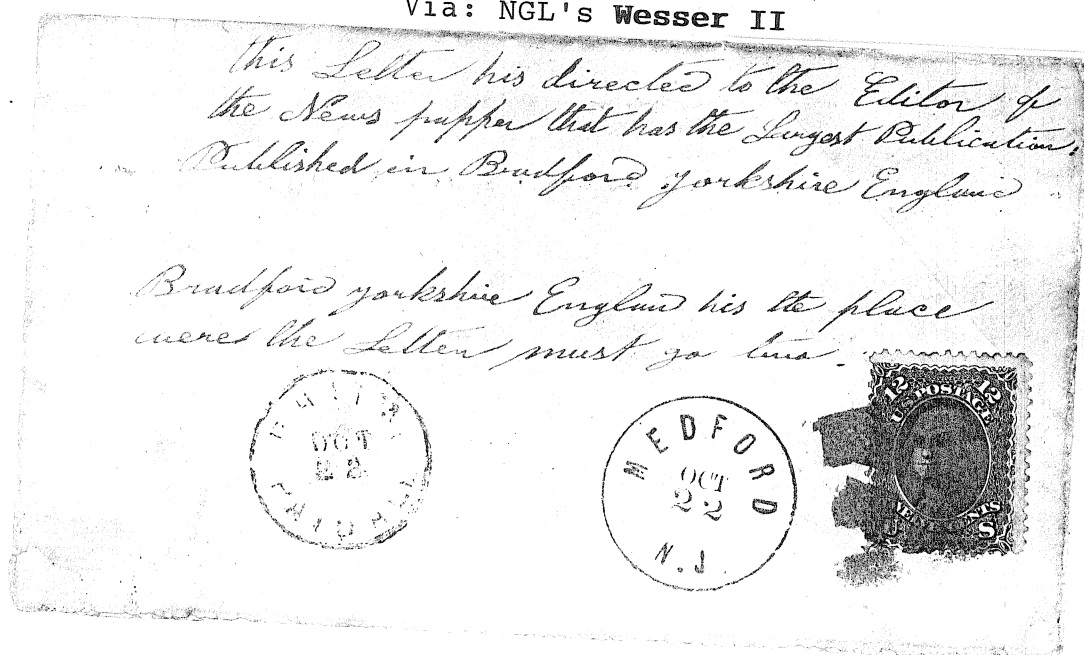 Via: NGL's Wesser II
this Letter his directed to the Editor of
the News pupper that has the Largest Publication.
Published in Bradford yorkshire England
Bradford yorkshire England his the place
were the Letter must go two.
OCT
MEDFORD
OCT
22
N.J.
12 12
U.S. POSTAGE
CENTS
U S